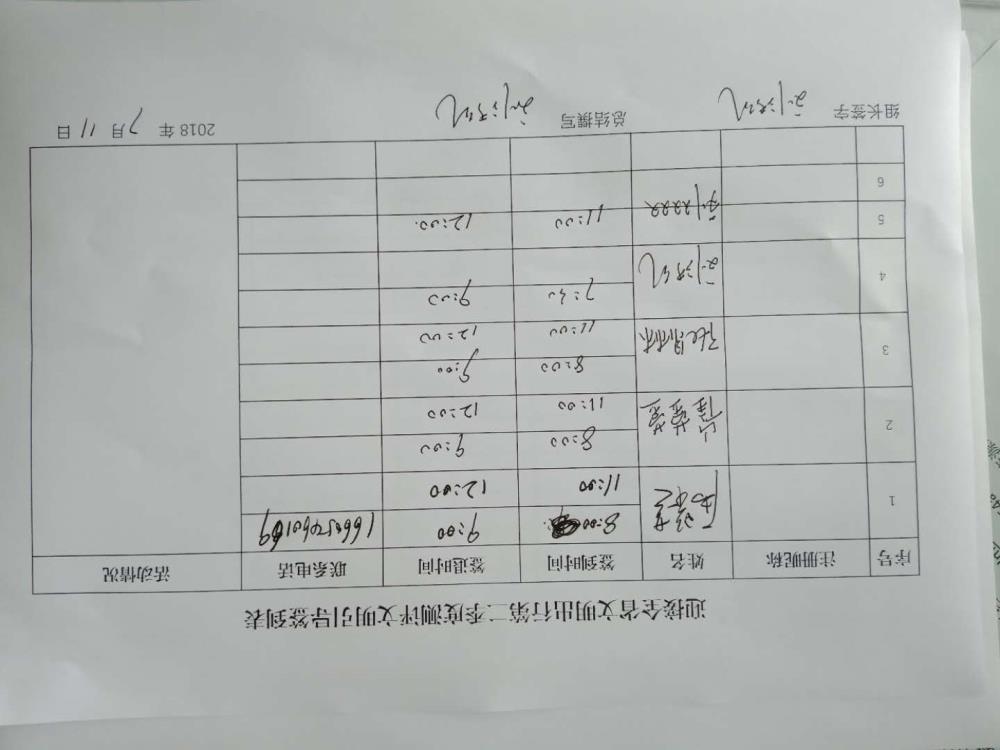 迎接全省文明出行第二季度测评文明引导签到表
序号 注册昵称 姓名 签到时间 签退时间 联系电话 活动情况
1 8:00 9:00
11:00 12:00
2 8:00 9:00
11:00 12:00
3 8:00 9:00
11:00 12:00
4 7:30 9:00
5 11:00 12:00
6
组长签字 总结撰写 2018 年 7 月 11 日